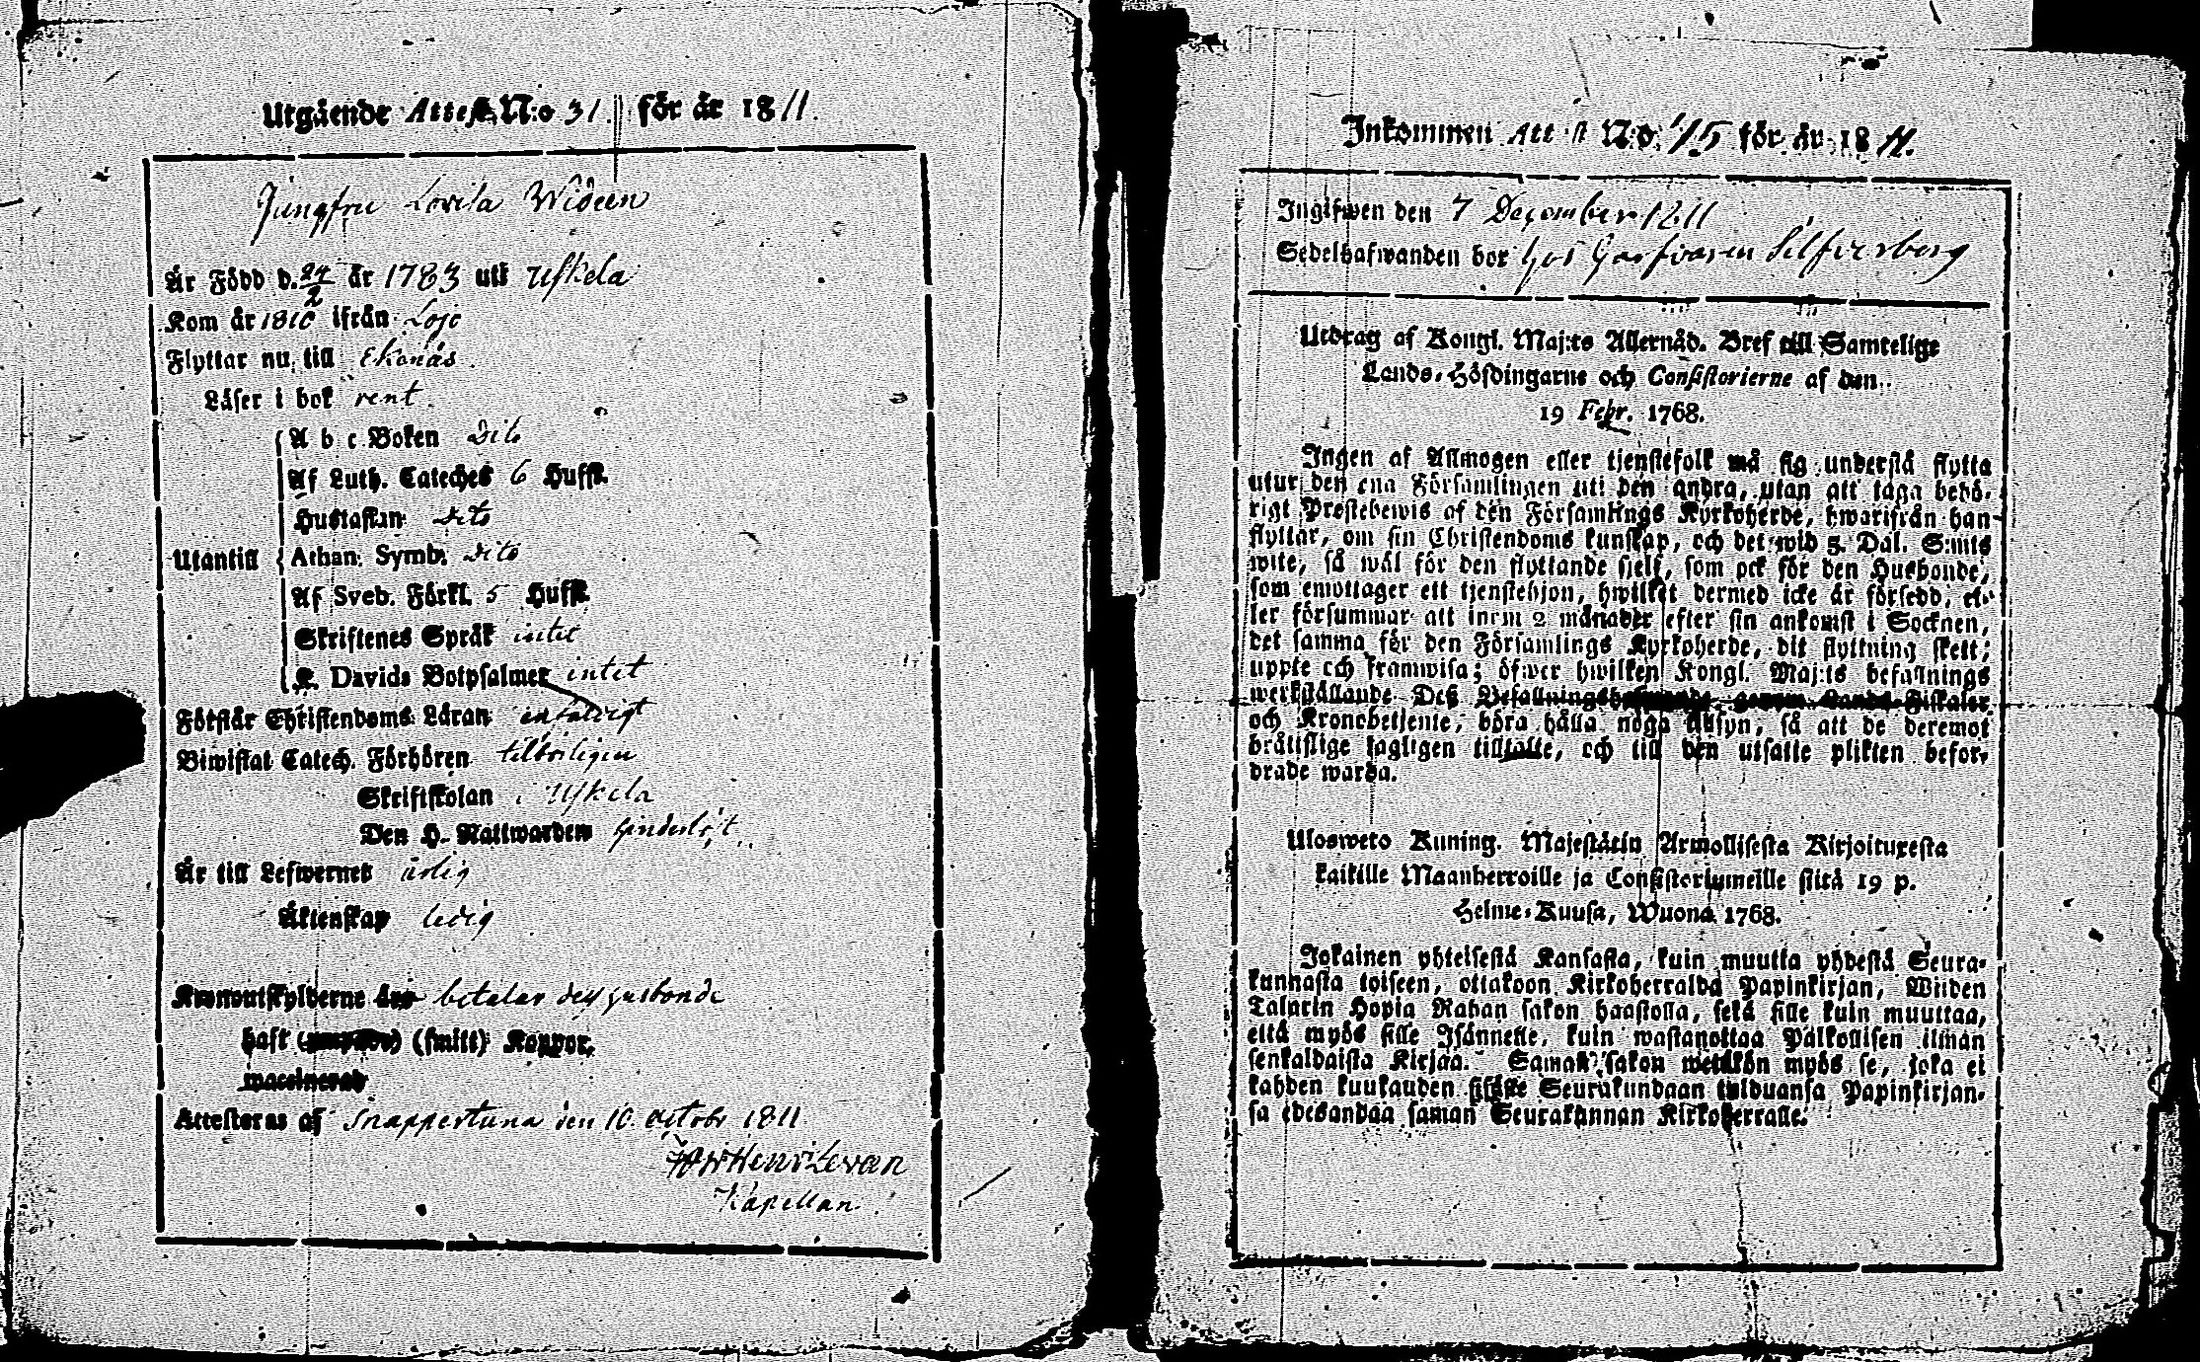 Utgående Attest N:o 31. för år 1811.
Jungfru Lovisa Wideen
Är Född d. 24/2 år 1783 uti Uskela
Kom år 1810 ifrån Lojo
Flyttar nu till Ekenäs.
Läser i bok rent.
A b c Boken dito
Af Luth. Cateches 6 Hufst.
Hustaflan dito
Utantill Athan. Symb. dito
Af Sveb. Förkl. 5 Hufst.
Skriftenes Språk intet
K. Davids Botpsalmer intet
Förstår Christendoms Läran enfaldigt
Biwistat Catech. Förhören tilbörligen
Skriftskolan i Uskela
Den H. Nattwarden hinderlöst
Är till Lefwernet ärlig
Äktenskap ledig
Kronoutskylderne betalar dess husbonde
haft (smitt) Koppor,
Attesteras af Snappertuna den 10. octobr 1811
Kapellan.
Inkommen Attest N:o. 75 för år 1811.
Ingifwen den 7 December 1811
Sedelhafwanden bor hos Garfvaren Silfverberg
Utdrag af Kongl. Maj:ts Allernåd. Bref till Samtelige
Lands-Höfdingarne och Consistorierne af den
19 Febr. 1768.
Ingen af Allmogen eller tjenstefolk må sig understå flytta
utur den ena Församlingen uti den andra, utan att taga behö-
rigt Prestebewis af den Församlings Kyrkoherde, hwarifrån han
flyttar, om sin Christendoms kunskap, och det wid 5. Dal. S:mts
wite, så wäl för den flyttande sjelf, som ock för den Husbonde,
som emottager ett tjenstehjon, hwilket dermed icke är försedd, el-
ler försummar att inom 2 månader efter sin ankomst i Socknen,
det samma för den Församlings Kyrkoherde, dit flyttning skett,
uppte och framwisa; öfwer hwilken Kongl. Maj:ts befallnings
werkställande Deß Befallningshafwande genom Lands-Fiskaler
och Kronobetjente, böra hålla noga tillsyn, så att de deremot
bråttslige lagligen tilltalte, och till den utsatte plikten befor-
drade warda.
Ulosweto Kuning. Majestätin Armollisesta Kirjoituxesta
kaikille Maanherroille ja Consistoriumeille siitä 19 p.
Helme-Kuusa, Wuona 1768.
Jokainen yhteisestä Kansasta, kuin muutta yhdestä Seura-
kunnasta toiseen, ottakoon Kirkoherralda Papinkirjan, Wiiden
Talarin Hopia Rahan sakon haastolla, sekä sille kuin muuttaa,
että myös sille Isännelle, kuin wastanottaa Palkollisen ilman
senkaldaista Kirjaa. Saman sakon wetäkön myös se, joka ei
kahden kuukauden sisälle Seurakundaan tulduansa Papinkirjan-
sa edesandaa saman Seurakunnan Kirkoherralle.